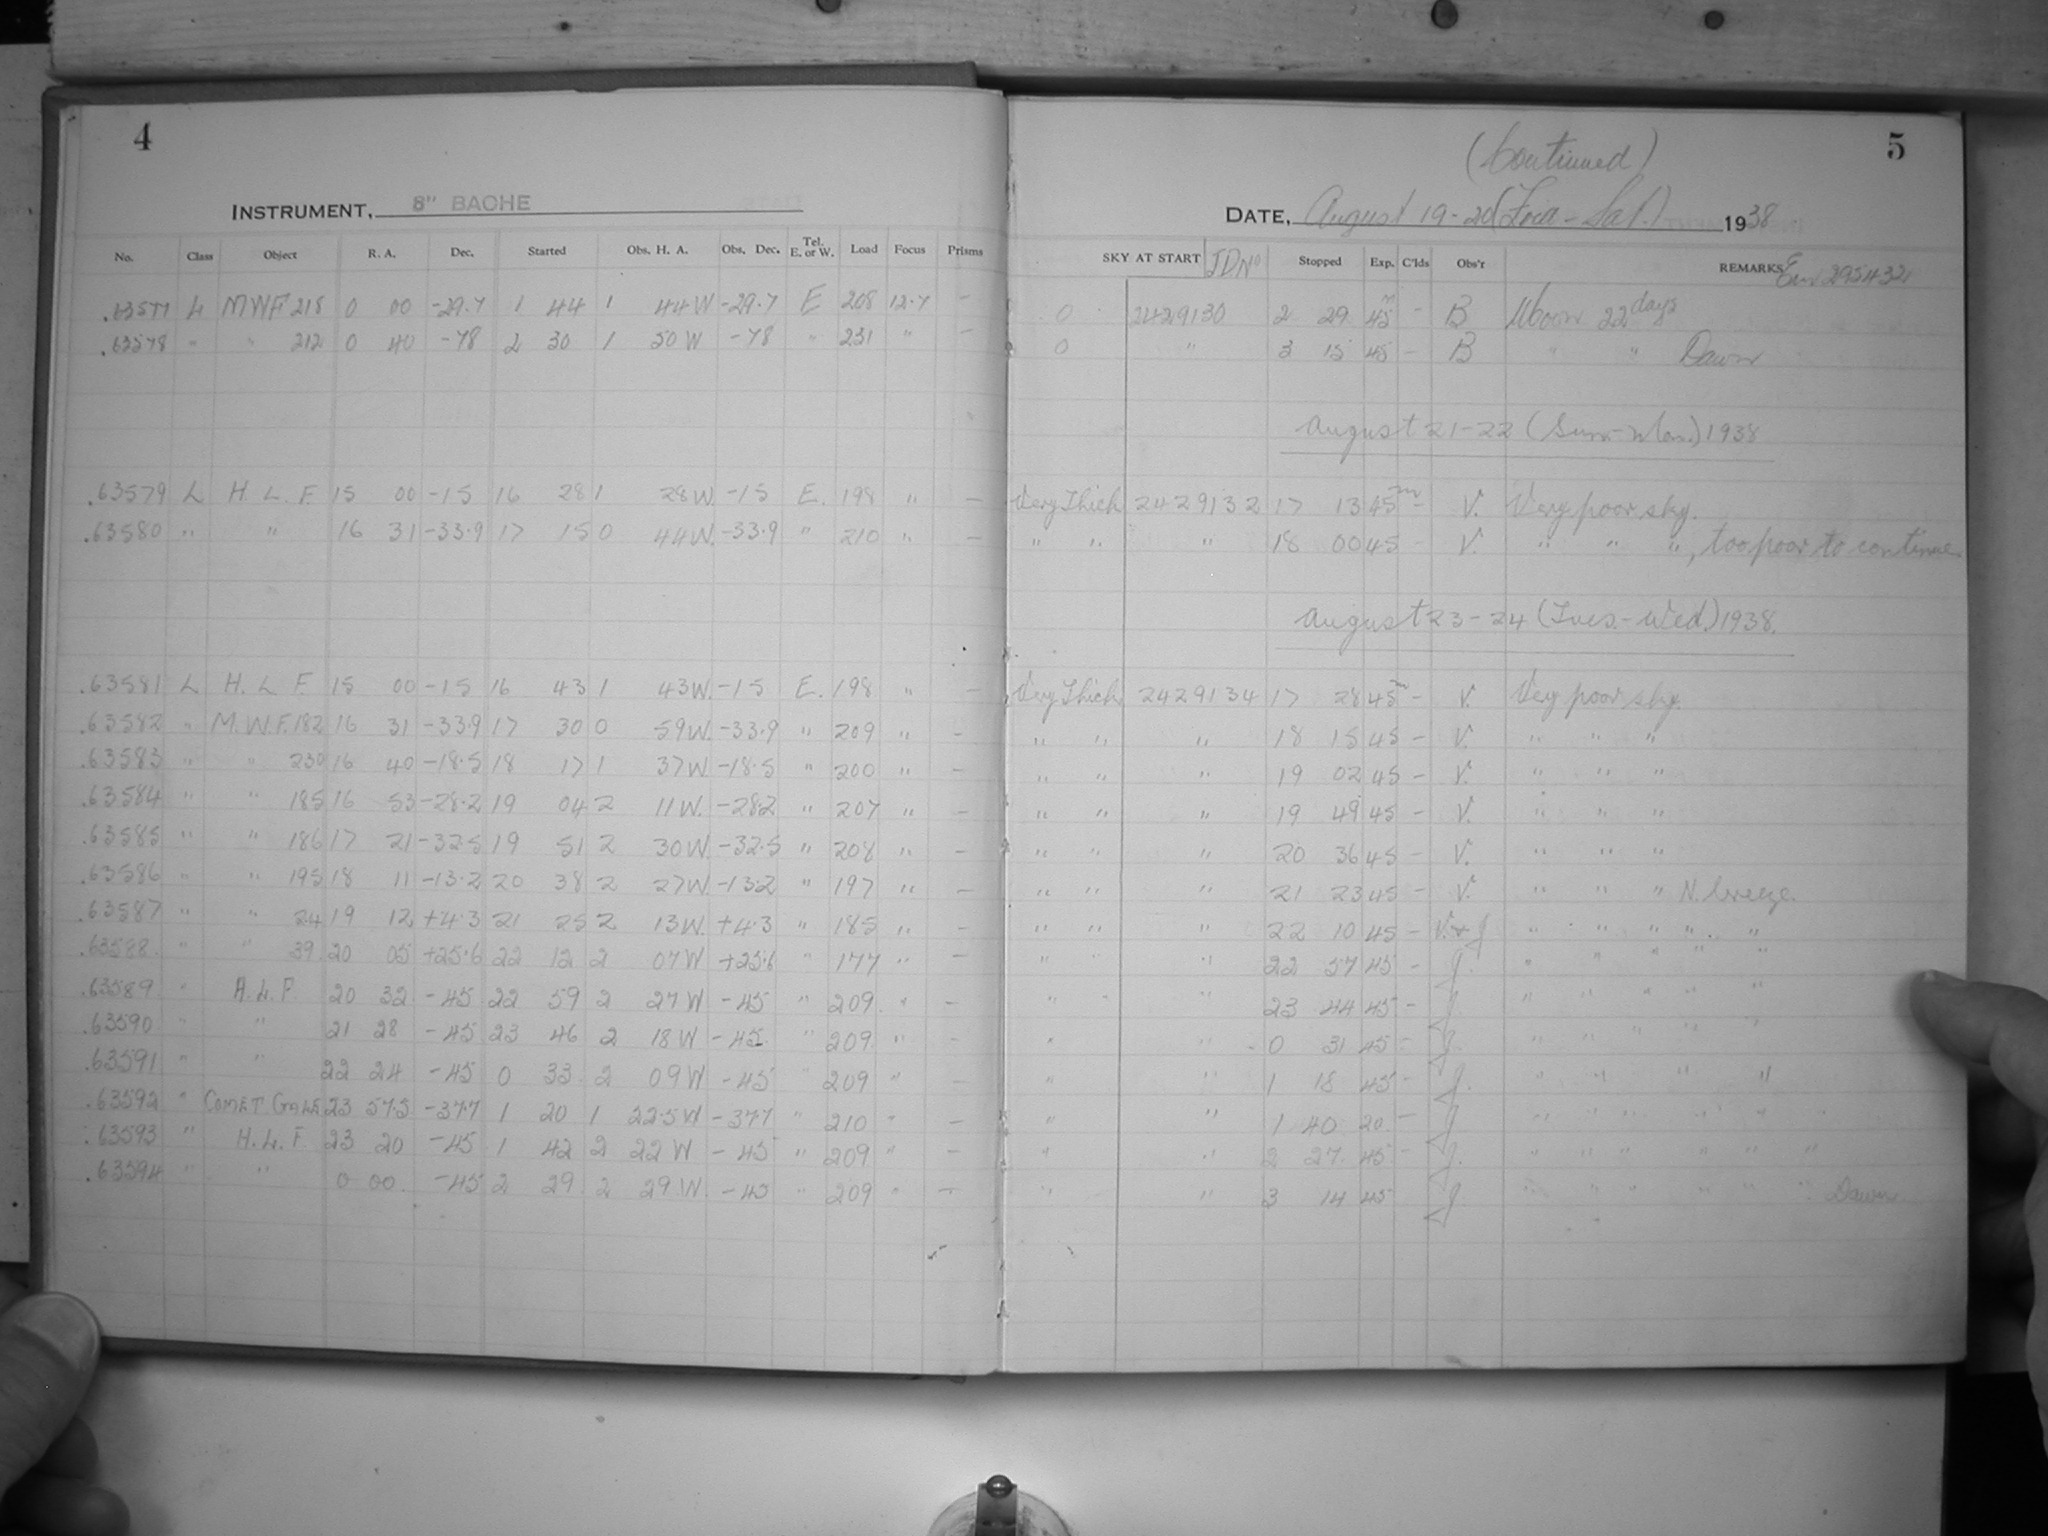 4
INSTRUMENT, 8" BACHE
No. Class Object R. A. Dec. Started Obs. H. A. Obs. Dec. Tel. E. or W. Load Focus Prisms
.63577 L MWF 218 0 00 -29.7 1 44 1 44 W -29.7 E 208 12.7 -
.63578 " " 212 0 40 -78 2 30 1 50 W -78 " 231 " -
.63579 L H. L. F. 15 00 -15 16 28 1 28 W. -15 E. 198 " -
.63580 " " 16 31 -33.9 17 15 0 44 W. -33.9 " 210 " -
.63581 L H. L. F. 15 00 -15 16 43 1 43 W. -15 E. 198 " -
.63582 " M. W. F. 182 16 31 -33.9 17 30 0 59 W. -33.9 " 209 " -
.63583 " " 230 16 40 -18.5 18 17 1 37 W. -18.5 " 200 " -
.63584 " " 185 16 53 -28.2 19 04 2 11 W. -28.2 " 207 " -
.63585 " " 186 17 21 -32.5 19 51 2 30 W. -32.5 " 208 " -
.63586 " " 195 18 11 -13.2 20 38 2 27 W. -13.2 " 197 " -
.63587 " " 24 19 12 +4.3 21 25 2 13 W. +4.3 " 185 " -
.63588 " " 39 20 05 +25.6 22 12 2 07 W +25.6 " 177 " -
.63589 " H. L. F. 20 32 -45 22 59 2 27 W -45 " 209 " -
.63590 " " 21 28 -45 23 46 2 18 W -45 " 209 " -
.63591 " " 22 24 -45 0 33 2 09 W -45 " 209 " -
.63592 " COMET GALE 23 57.5 -37.7 1 20 1 22.5 W -37.7 " 210 " -
.63593 " H. L. F. 23 20 -45 1 42 2 22 W -45 " 209 " -
.63594 " " 0 00 -45 2 29 2 29 W. -45 " 209 " -
5
(Continued)
DATE, August 19-20 (Fri - Sat.) 1938
SKY AT START JD No Stopped Exp. C'lds Obs'r REMARKS
0 2429130 2 29 45m - B Moon 22 days
0 " 3 15 45 - B " " Dawn
August 21-22 (Sun.-Mon.) 1938
Very Thick 2429132 17 13 45m - V. Very poor sky.
" " " 18 00 45 - V. " " ", too poor to continue
August 23-24 (Tues.-Wed.) 1938.
Very Thick 2429134 17 28 45m - V. Very poor sky.
" " " 18 15 45 - V. " " "
" " " 19 02 45 - V. " " "
" " " 19 49 45 - V. " " "
" " " 20 36 45 - V. " " "
" " " 21 23 45 - V. " " " N. breeze.
" " " 22 10 45 - V.+J " " " " "
" " " 22 57 45 - J. " " " " "
" " " 23 44 45 - J " " " " "
" " 0 31 45 - J. " " " " "
" " 1 18 45 - J. " " " " "
" " 1 40 20 - J " " " " " "
" " 2 27 45 - J. " " " " " "
" " 3 14 45 J " " " " " " Dawn